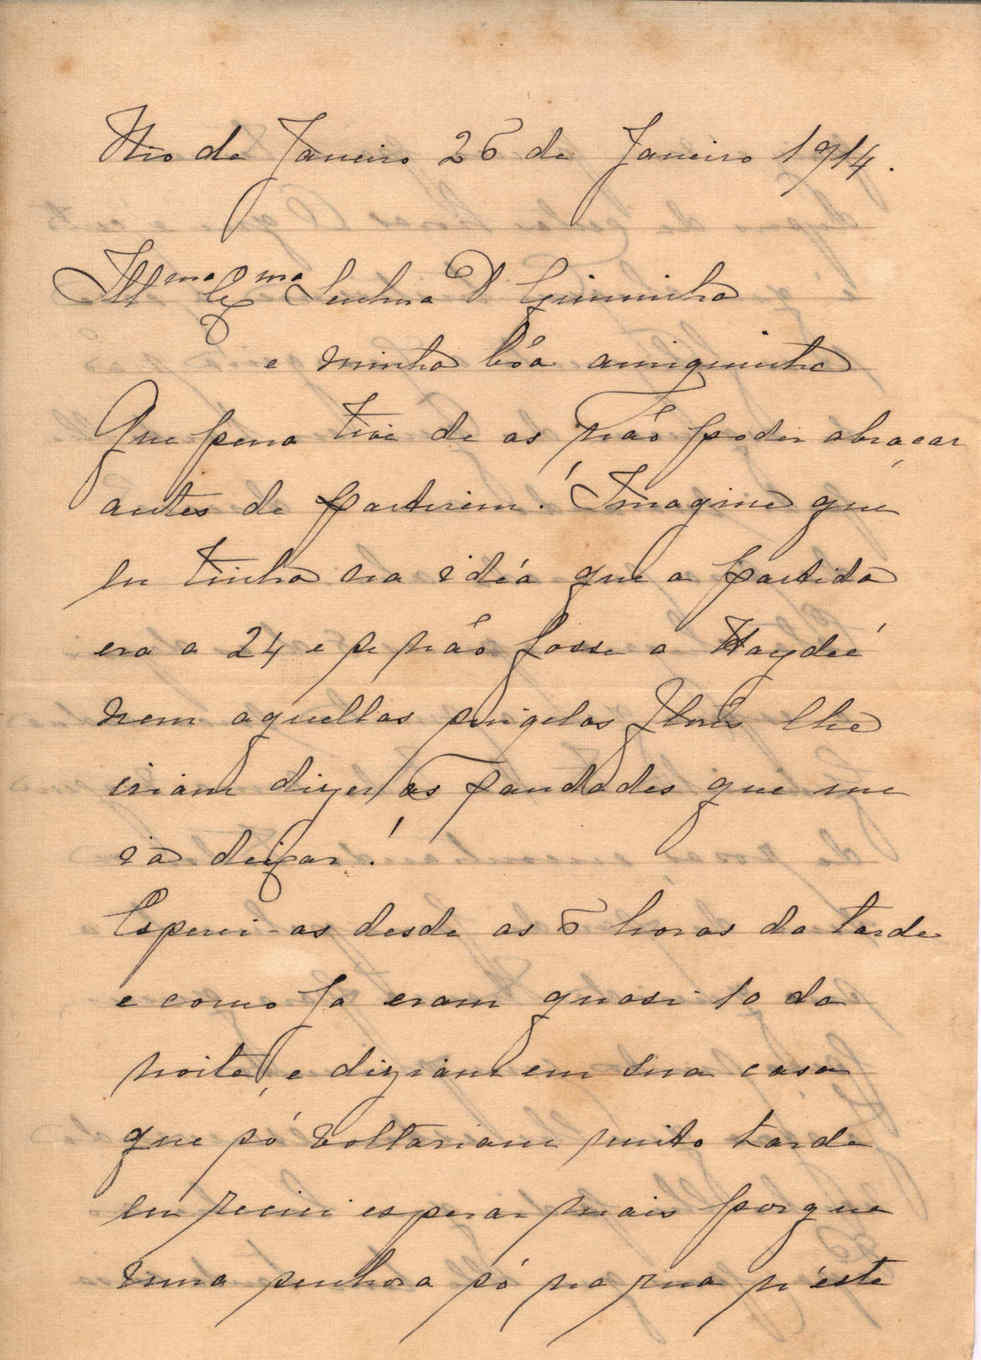 Rio de Janeiro 26 de Janeiro 1914.
Illma Exma Senhora D. Gimminha
e minha bôa amiguinha
Que pena tive de as não poder abraçar
antes de partirem! Imagine que
eu tinha na idéa que a partida
era a 24 e se não fosse a Haydeé
nem aquellas singelas flores lhe
iriam dizer as saudades que me
ia deixar!
Esperei-as desde as 5 horas da tarde
e como ja eram quasi 10 da
noite, e diziam em sua casa
que só voltariam muito tarde
eu receiei esperar mais porque
uma senhora só na rua n'este